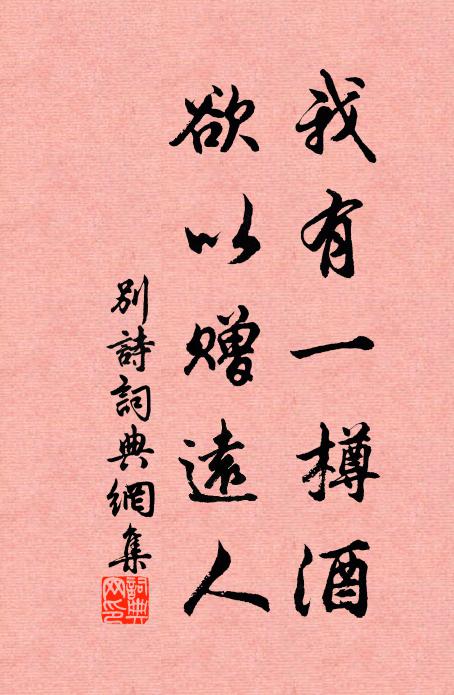 我有一樽酒
欲以贈遠人
別詩詞典網集
詞典網印